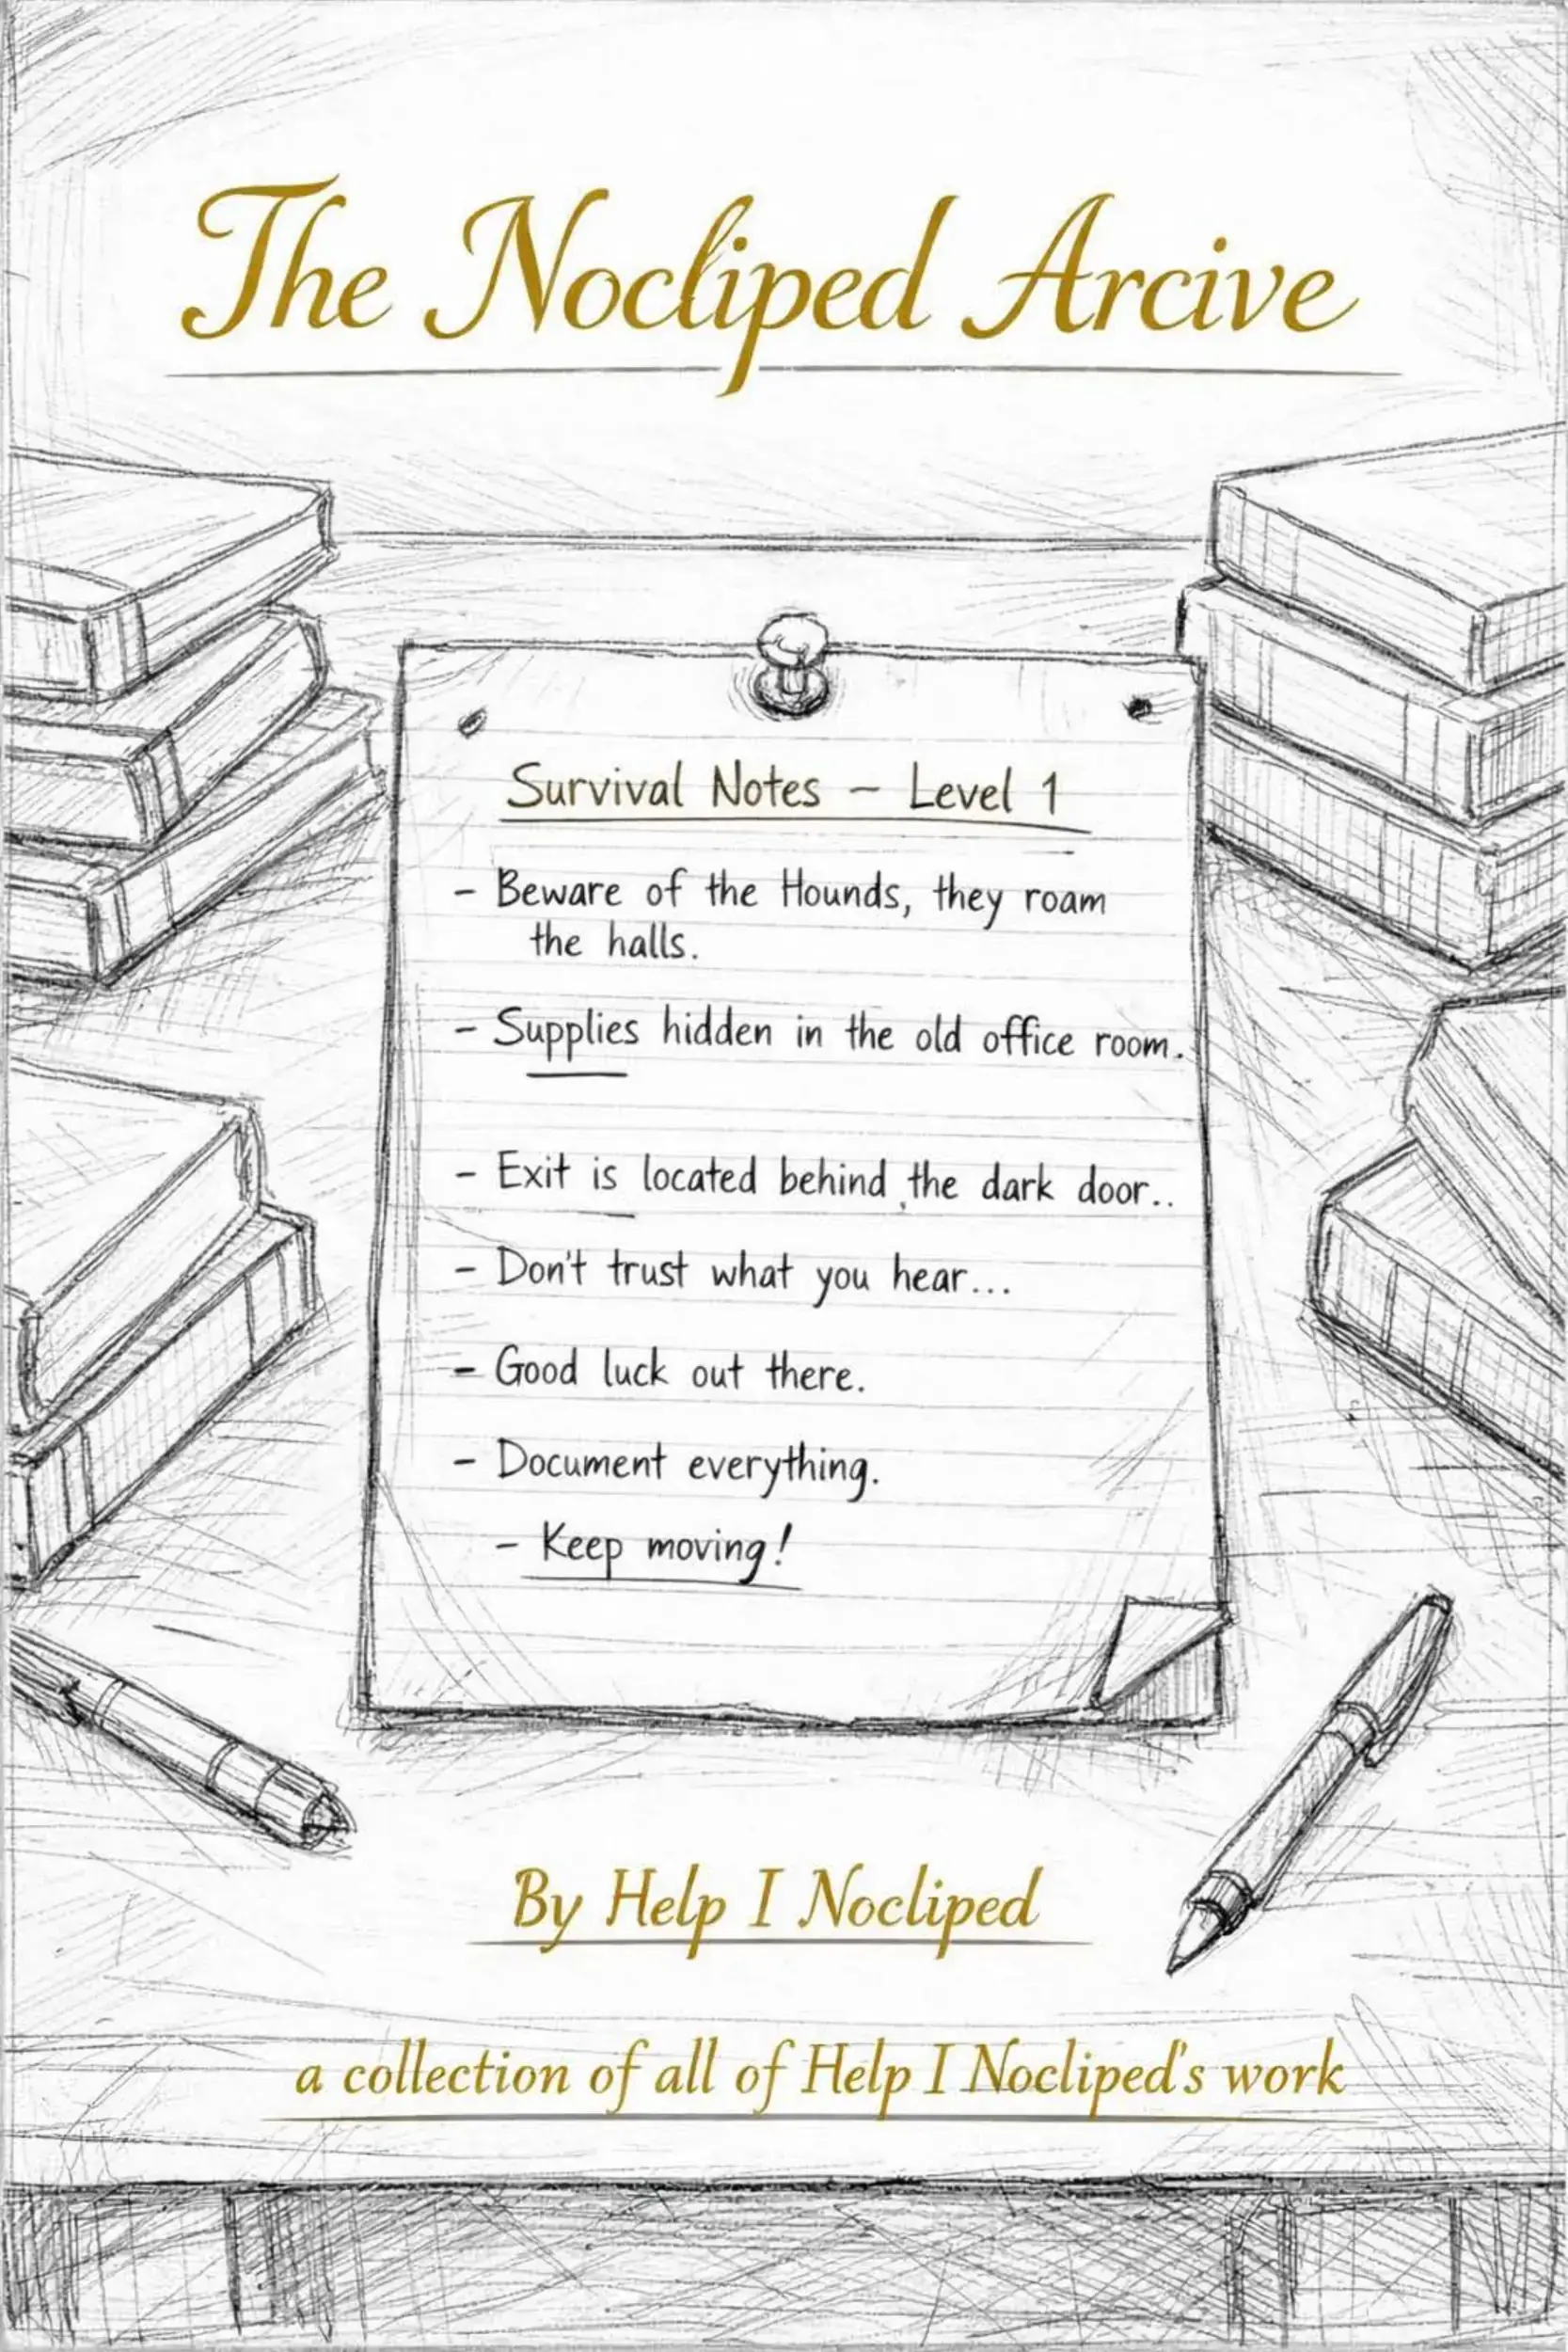 The Nocliped Arcive
Survival Notes – Level 1
- Beware of the Hounds, they roam
the halls.
- Supplies hidden in the old office room.
- Exit is located behind the dark door..
- Don't trust what you hear...
- Good luck out there.
- Document everything.
- Keep moving!
By Help I Nocliped
a collection of all of Help I Nocliped's work